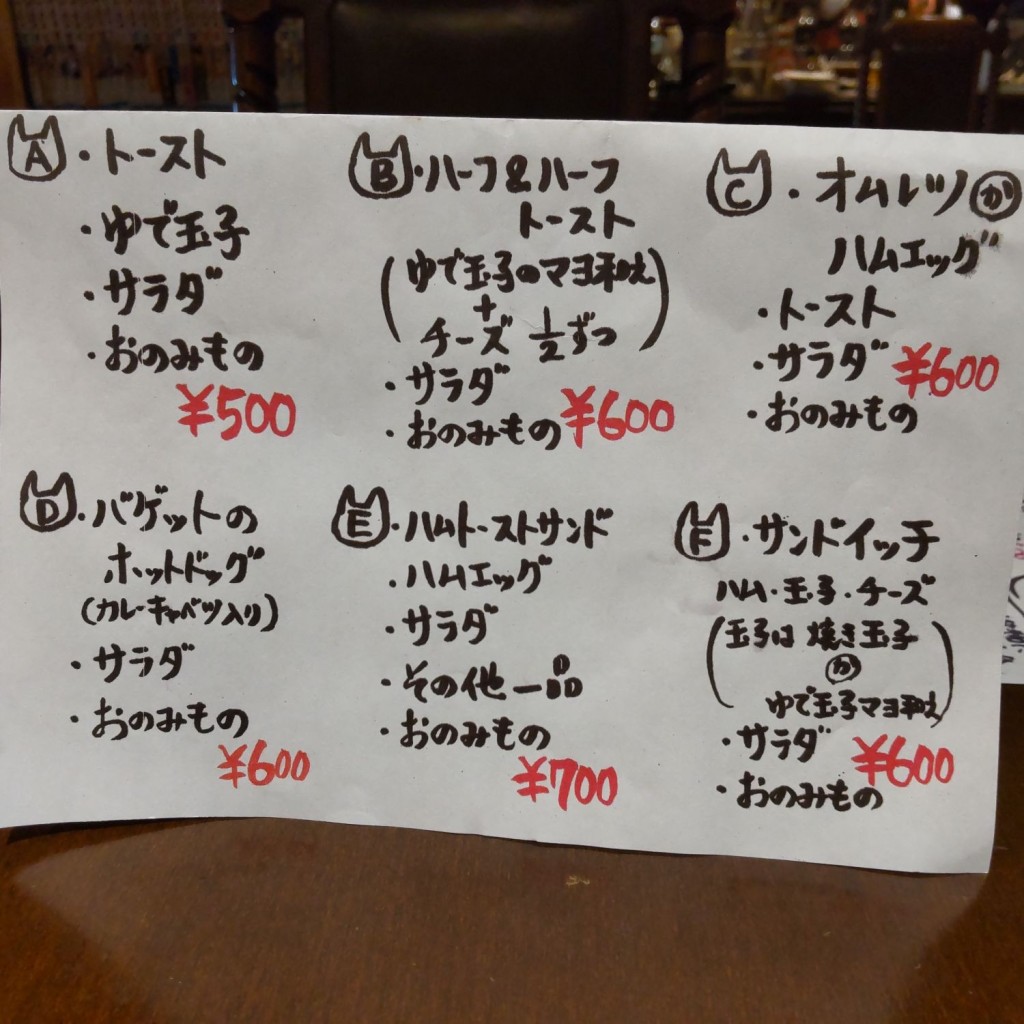 A・トースト
・ゆで玉子
・サラダ
・おのみもの
¥500
B・ハーフ&ハーフ
トースト
(ゆで玉子のマヨ和え
+
チーズ 1/2ずつ)
・サラダ
・おのみもの ¥600
C・オムレツか
ハムエッグ
・トースト
・サラダ ¥600
・おのみもの
D・バゲットの
ホットドッグ
(カレーキャベツ入り)
・サラダ
・おのみもの
¥600
E・ハムトーストサンド
・ハムエッグ
・サラダ
・その他一品
・おのみもの
¥700
F・サンドイッチ
ハム・玉子・チーズ
(玉子は焼き玉子
か
ゆで玉子マヨ和え)
・サラダ ¥600
・おのみもの